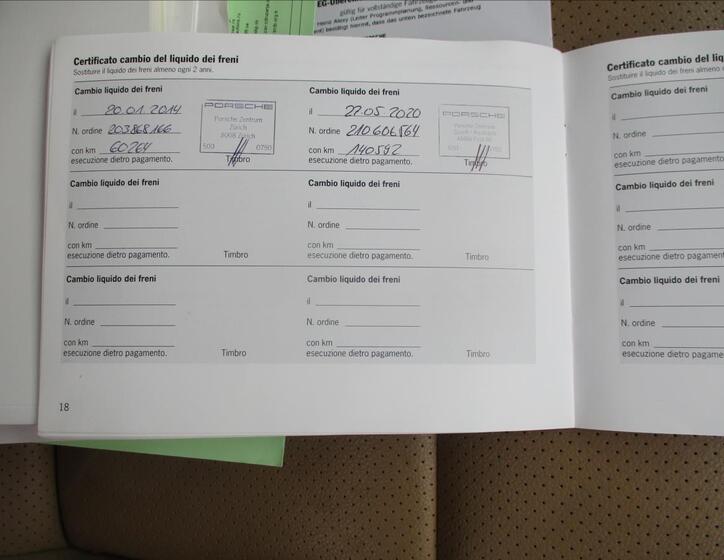 EG-Überein
gültig für vollständige Fahrzeug
Heinz Alexy (Unter Programmplanung, Ressourcen- und
ent) bestätigt hiermit, dass das unten bezeichnete Fahrzeug
Certificato cambio del liquido dei freni
Sostituire il liquido dei freni almeno ogni 2 anni.
Cambio liquido dei freni
il 20.01.2014
N. ordine 203868166
con km 60264
esecuzione dietro pagamento.
PORSCHE
Porsche Zentrum
Zürich
8008 Zürich
500 0750
Timbro
Cambio liquido dei freni
il 27.05.2020
N. ordine 210606564
con km 140592
esecuzione dietro pagamento.
PORSCHE
Porsche Zentrum
Timbro
Cambio liquido dei freni
il
N. ordine
con km
esecuzione dietro pagamento.
Timbro
Cambio liquido dei freni
il
N. ordine
con km
esecuzione dietro pagamento.
Timbro
Cambio liquido dei freni
il
N. ordine
con km
esecuzione dietro pagamento.
Timbro
Cambio liquido dei freni
il
N. ordine
con km
esecuzione dietro pagamento.
Timbro
18
Certificato cambio del liq
Sostituire il liquido dei freni almeno
Cambio liquido dei freni
il
N. ordine
con km
esecuzione dietro pagamen
Cambio liquido dei freni
il
N. ordine
con km
esecuzione dietro pagament
Cambio liquido dei freni
il
N. ordine
con km
esecuzione dietro pagame